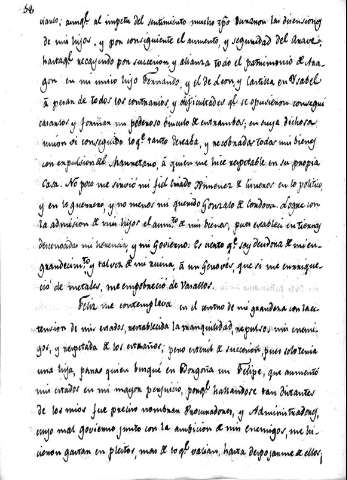 58.
viano; aunq.e al impetu del sentimiento mucho tpo duraron las disensiones
de mis hijos, y por consiguiente el aumento, y seguridad del Arave,
hasta q.e recayendo por succesion y alianza todo el patrimonio de Ara-
gon en mi unico hijo Fernando, y el de Leon y Castilla en Ysabel
à pesar de todos los contrarios y dificultades q.e se opusieron consegui
casarlos y formar un poderoso vinculo de entrambos; en cuya dichosa
union se conseguido lo q.e tanto deseaba, y recobradas todas mis bienes
con expulsion del Mahometano, à quien me hice respetable en su propia
Casa. No poco me sirviò mi fiel criado Ximenez de Cisneros en lo politico
y en lo guerrero, y no menos mi querido Gonzalo de Cordova. Logrè con
la admision de mis hijos el aum.to de mis bienes, pues establecì en tierras
desconocidas mi herencia, y mi Govierno. Es cierto q.e soy deudora de mi en-
grandecim.to, y talvez de mi ruina, à un Genovès, que si me enrique-
ciò de metales, me empobreciò de Vasallos.
Feliz me contemplava en el centro de mi grandeza con la ex-
tension de mis estados, restablecida la tranquilidad, repulsos mis enemi-
gos, y respetada de los estraños; pero esteril de succesion pues solo tenia
una hija, para quien busquè en Borgoña un Felipe, que aumentò
mis estados en mi mayor perjuicio, porq.e hallandose tan distantes
de los mios fue preciso nombrar Procuradores, y Administradores,
cuyo mal govierno junto con la ambicion de mis enemigos, me hi-
cieron gastar en pleitos, mas de lo q.e valian, hasta despojarme de ellos,